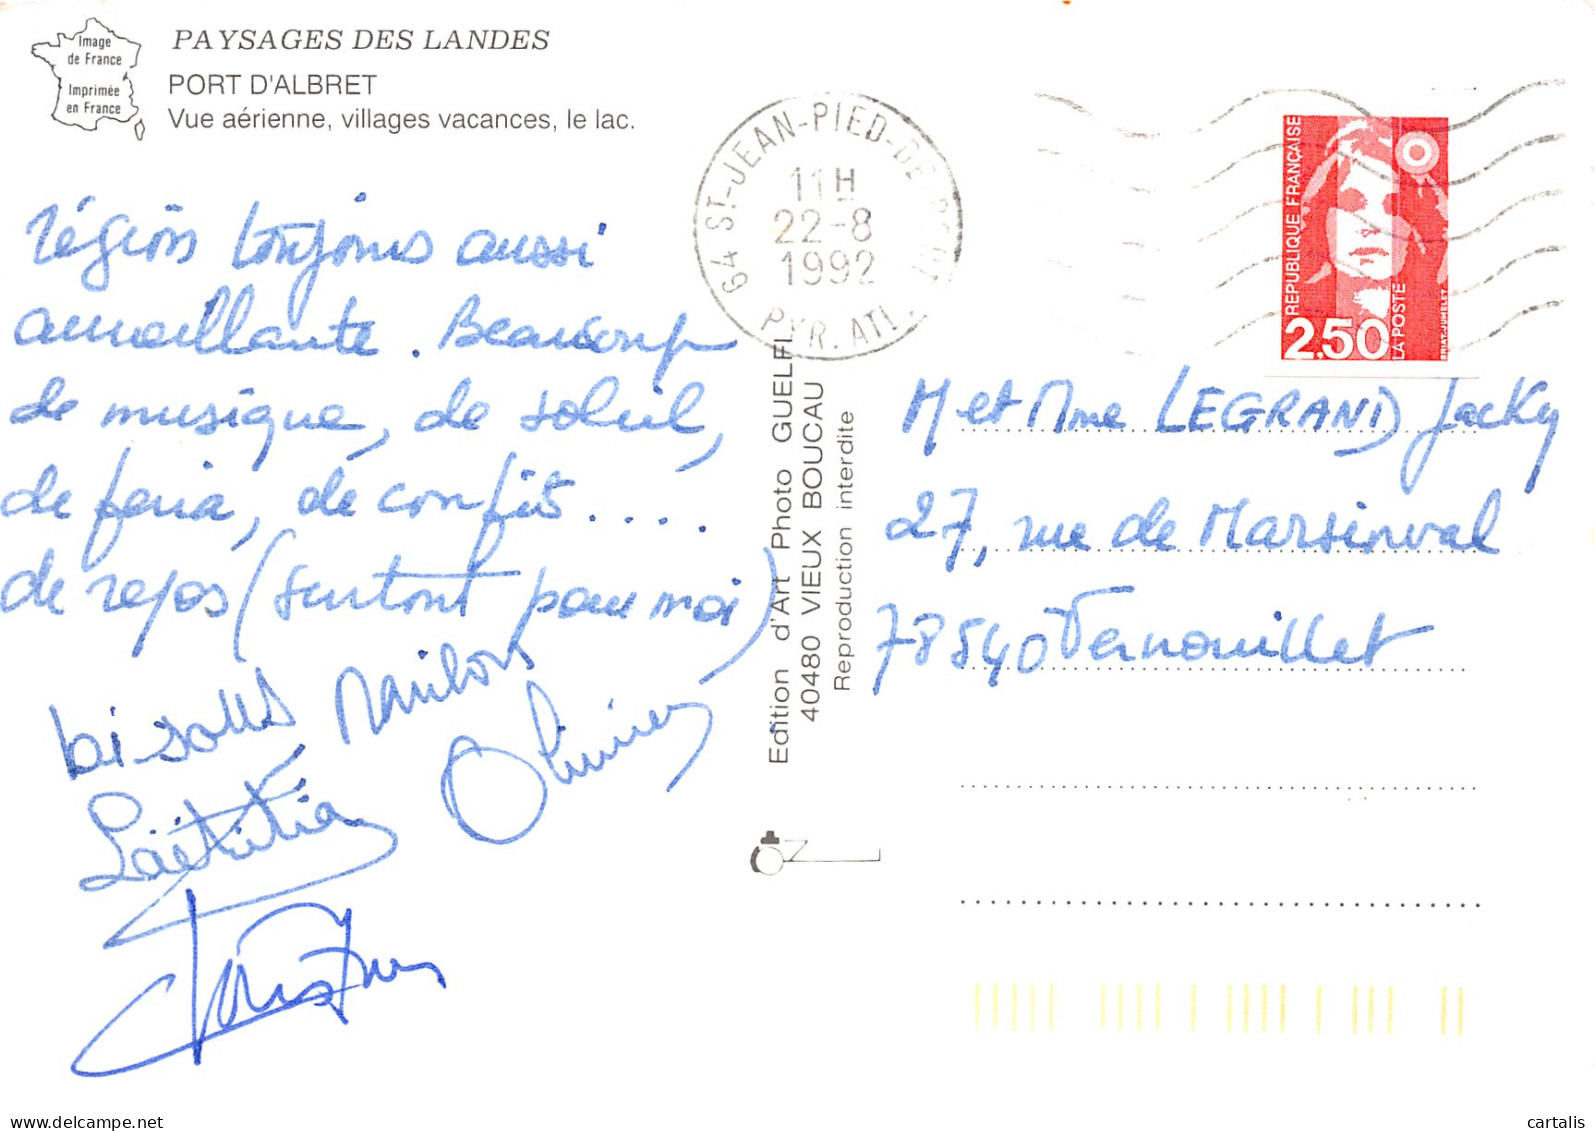 Image
de France
Imprimée
en France
PAYSAGES DES LANDES
PORT D'ALBRET
Vue aérienne, villages vacances, le lac.
64 ST-JEAN-PIED-DE-PORT
11H
22-8
1992
PYR. ATL.
REPUBLIQUE FRANÇAISE
2,50
LA POSTE
BRIAT-JUMELET
région toujours aussi
accueillante. Beaucoup
de musique, de soleil,
de feria, de confits....
de repos (surtout pour moi)
bisous
Laëtitia
Edition d'Art Photo GUELFI
40480 VIEUX BOUCAU
Reproduction interdite
M et Mme LEGRAND Jacky
27, rue de Marsinval
78540 Vernouillet
www.delcampe.net
cartalis